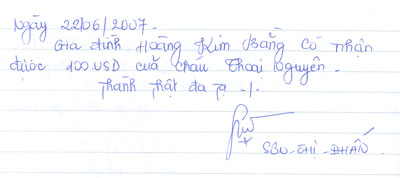 Ngày 22/06/2007.
Gia đình Hoàng Kim Bằng có nhận
được 100.USD cuả cháu Thoại Nguyên.
Thành thật đa tạ -/-